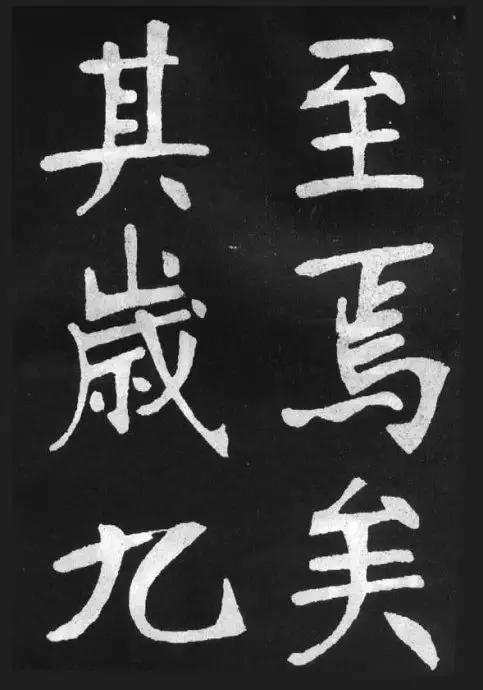 至焉矣
其歳九